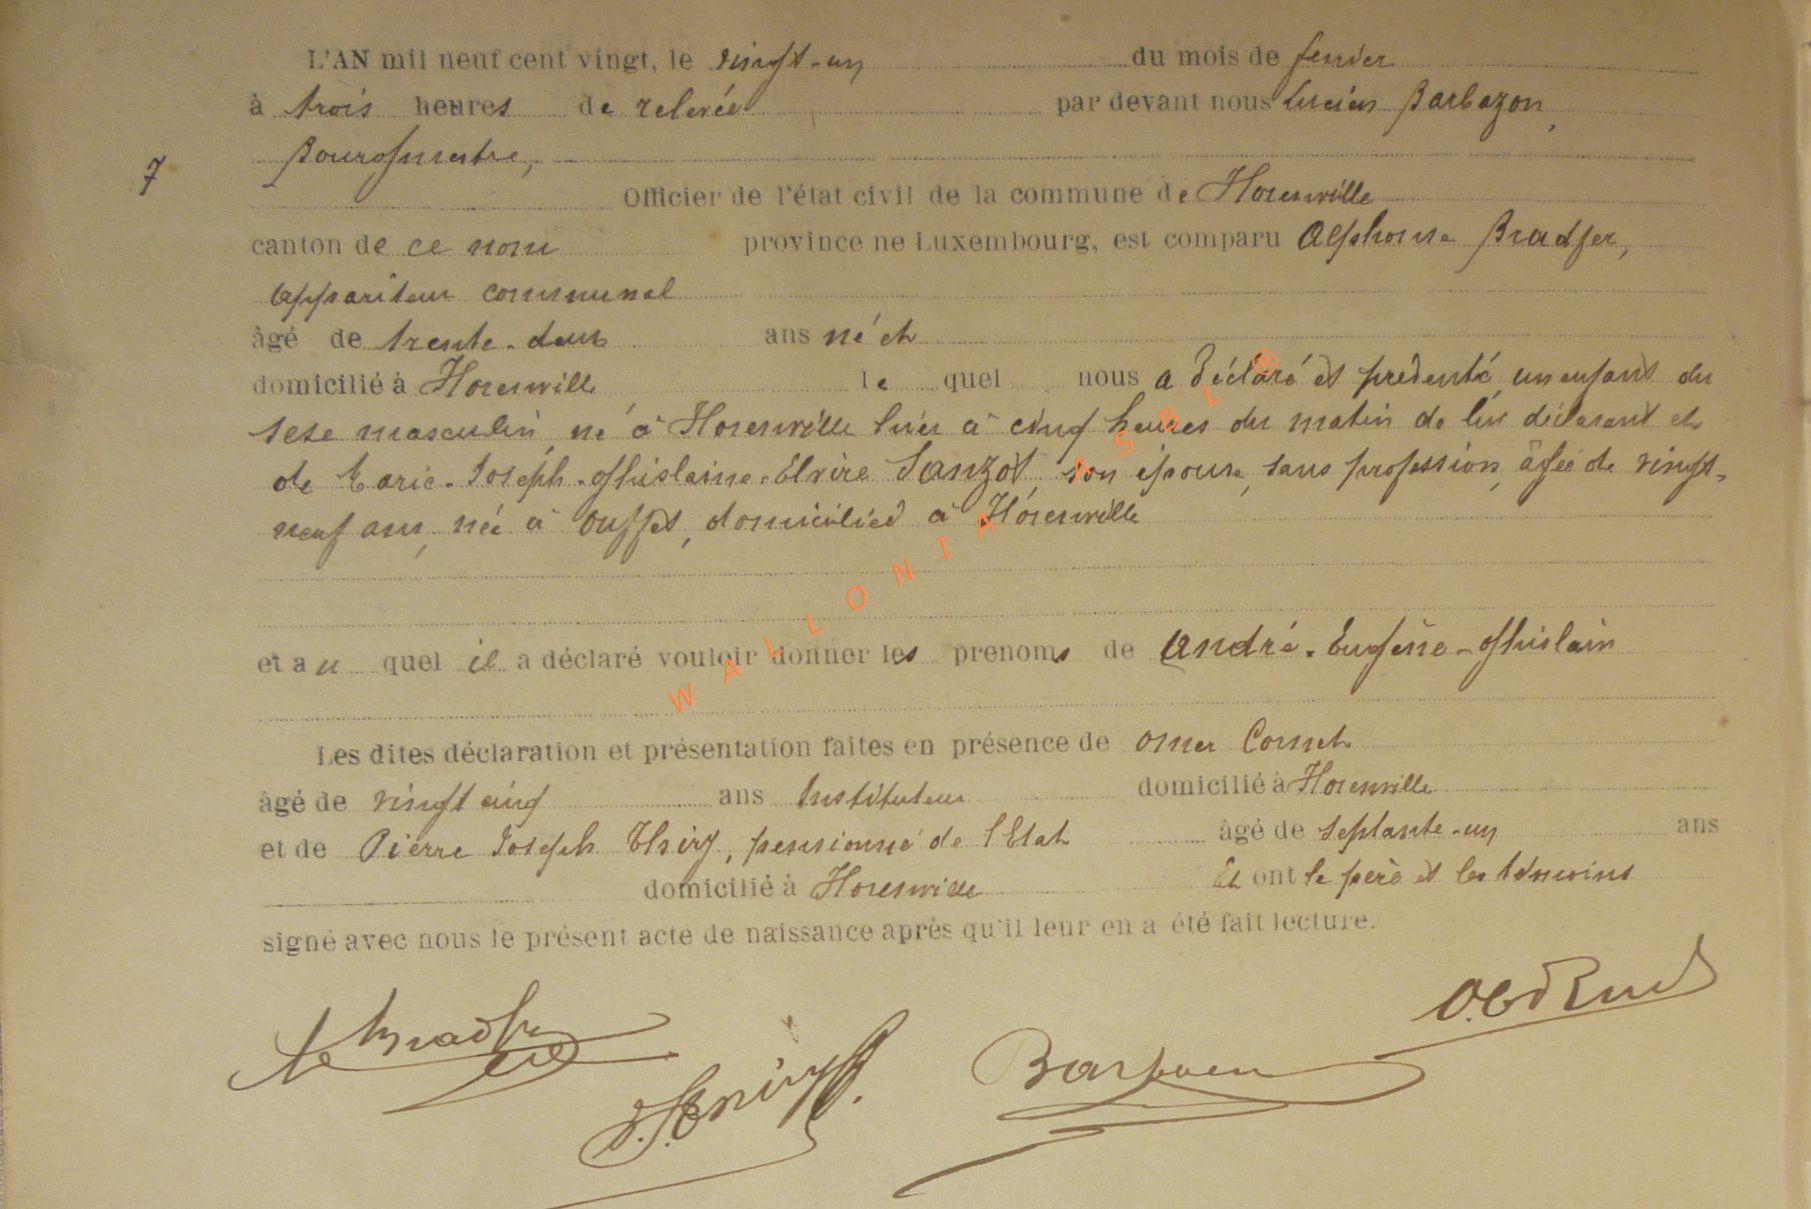 L'AN mil neuf cent vingt, le vingt-un du mois de fevrier
à trois heures de relevée par devant nous Lucien Barbazon,
Bourgmestre,
7
Officier de l'état civil de la commune de Florenville
canton de ce nom province ne Luxembourg, est comparu Alphonse Bradfer,
appariteur communal
âgé de trente-deux ans né et
domicilié à Florenville le quel nous a déclaré et présenté un enfant du
sexe masculin, né à Florenville hier à cinq heures du matin de lui déclarant et
de Marie-Joseph-Ghislaine-Elvire Sanzot, son épouse, sans profession, âgée de vingt-
neuf ans, née à Ouffet, domiciliée à Florenville
et au quel il a déclaré vouloir donner les prenoms de André-Eugène-Ghislain
Les dites déclaration et présentation faites en présence de Omer Cornet
âgé de vingt cinq ans Instituteur domicilié à Florenville
et de Pierre Joseph Thiry, pensionné de l'Etat âgé de septante-un ans
domicilié à Florenville Et ont le père et les témoins
signé avec nous le présent acte de naissance après qu'il leur en a été fait lecture.
Bradfer
WALLONIA ASBL ®